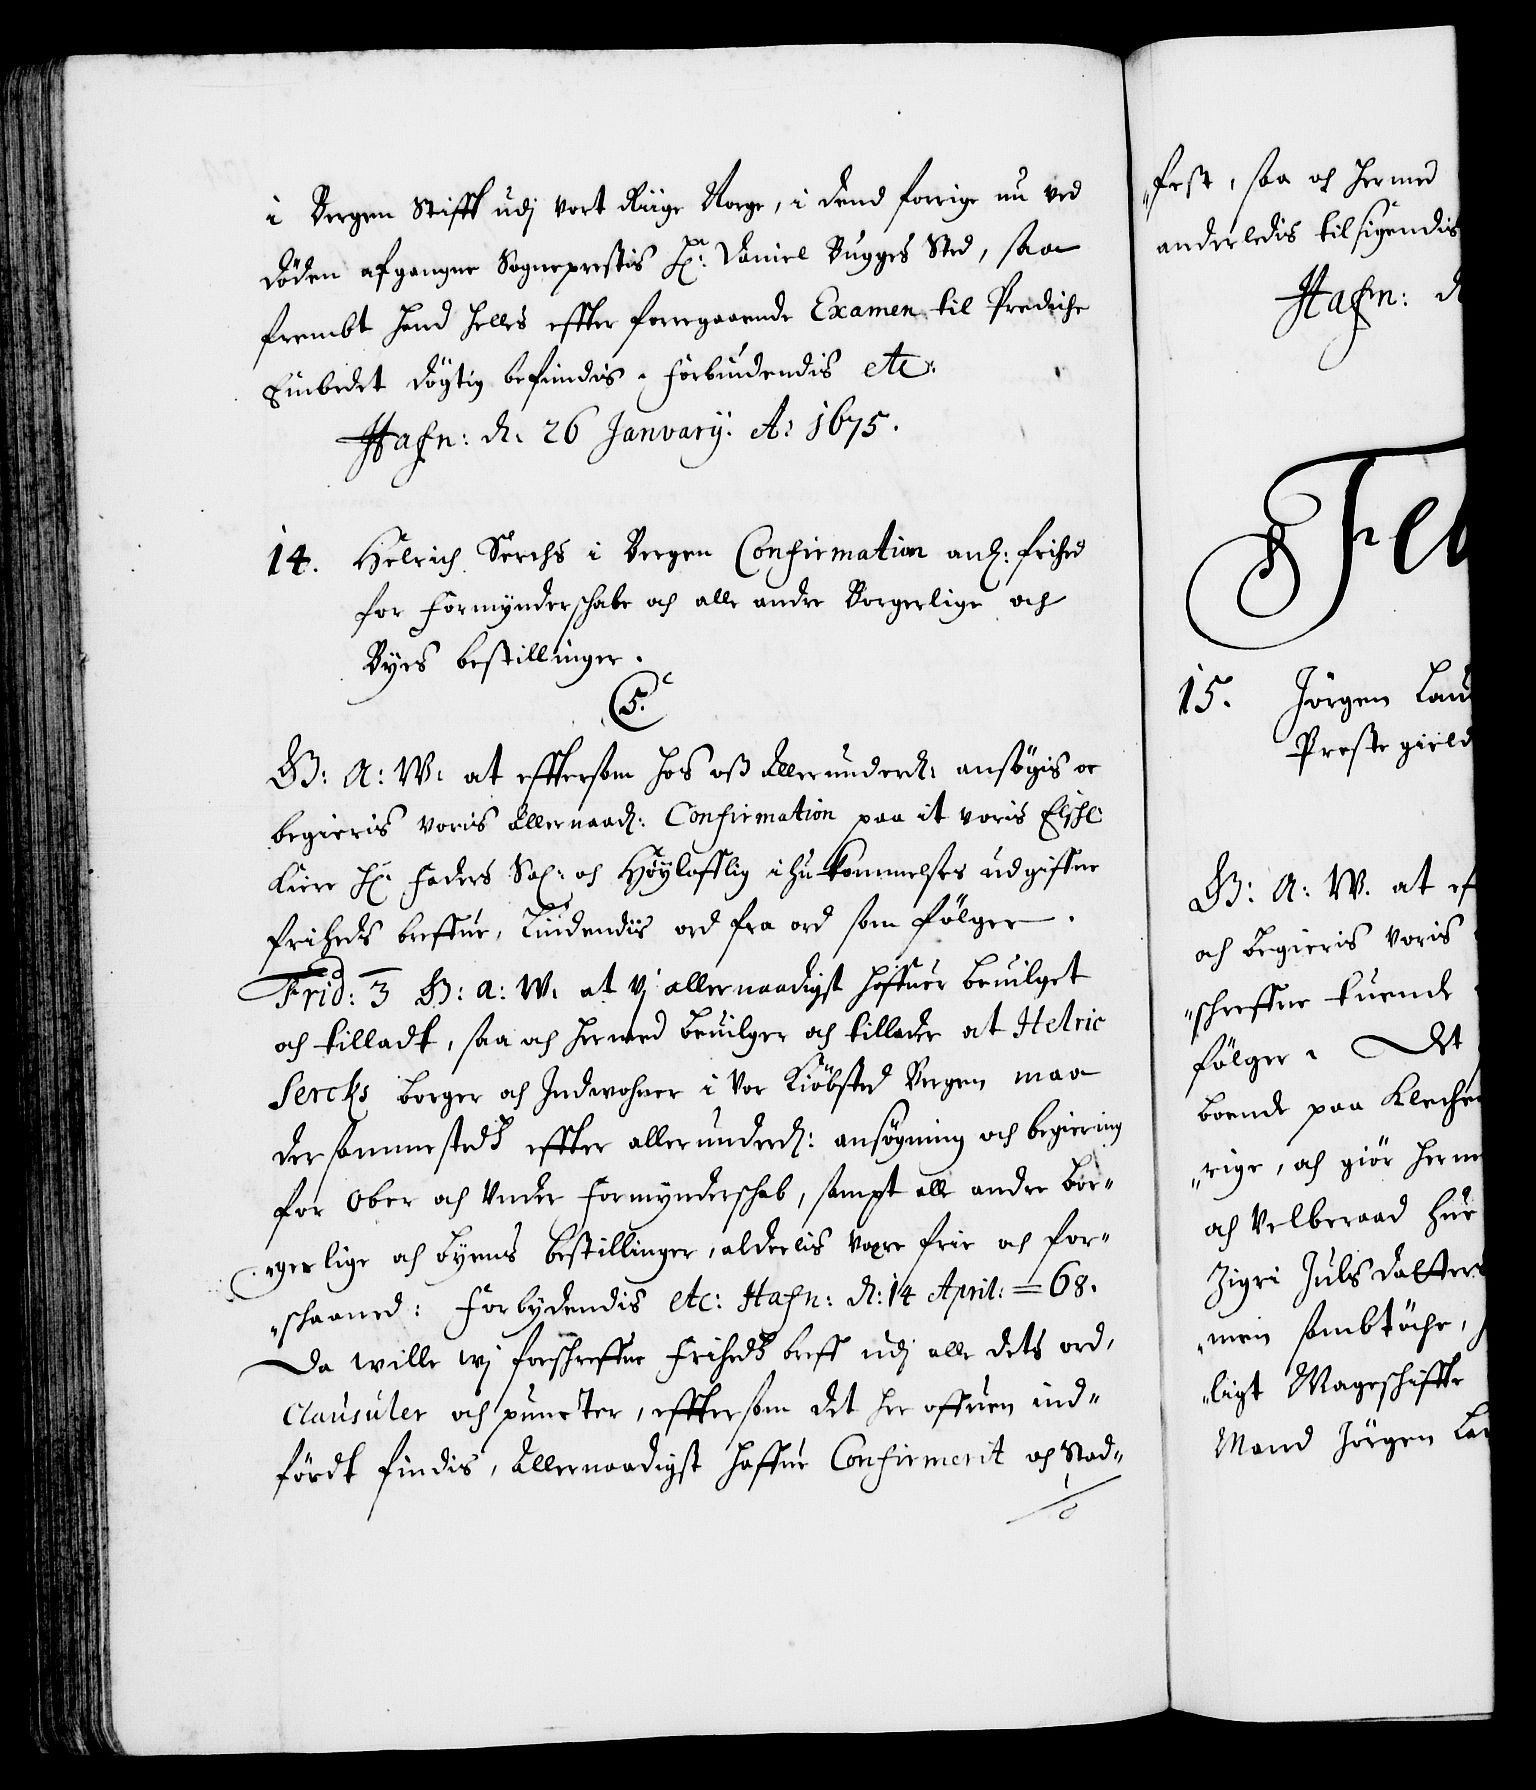 i Bergen Stifft udj vort Riige Norge, i dend forrige nu ved
döden afgangne Sogneprestis Hr: Daniel Bugges Sted, saa
frembt hand helles effter foregaaende Examen til Predicke
Embedet döytig befindis. Forbiudendis etc:
Hafn: d. 26 Januarij: A: 1675.
14. Helrich Serchs i Bergen Confirmation anl: frihed
for Formynderschabe och alle andre Borgerlige och
Byes bestillinger.
C 5.c
G: A: W: at efftersom hos oß Allerunderd: ansögis oc
begieris voris Allernaad: Confirmation paa it voris Elschl:
Kiere Hr: Faders Sal: och Höylofflig ihukommelses udgiffne
friheds breffue, Liudendiis ord fra ord som fölger.
Frid: 3 G: A: W: at Vj allernaadigst haffuer beuilget
och tilladt, saa och hermed beuilger och tillader at Helric
Sercks borger och Indwohner i Vor Kiöbsted Bergen maa
dersammestedz effter allerunderd: ansögning och begiering
for Ober och Under Formynderschab, sampt alle andre bor„
„gerlige och byens bestillinger, alderlis være frie och for„
„schaaned: Forbydendis etc: Hafn: d: 14 April: = 68.
Da wille wj forschreffne Friheds breff udj alle dets ord,
Clausuler och puncter, efftersom det her offuen ind„
fördt findis, Allernaadigst haffue Confirmerit och Stad„
„fest, saa och hermed
anderledis tilsigendis
Hafn: d
Feb
15. Jörgen Lau
Preste gield
G: A: W. at ef
och begieris Voris
„schreffne tuende
fölger. Det
boende paa Kleche
„rige, och giör herme
och Velberaad hue
Zigri Juls dalters
„min sambtöche,
„ligt Mageschiffte
Mand Jörgen La